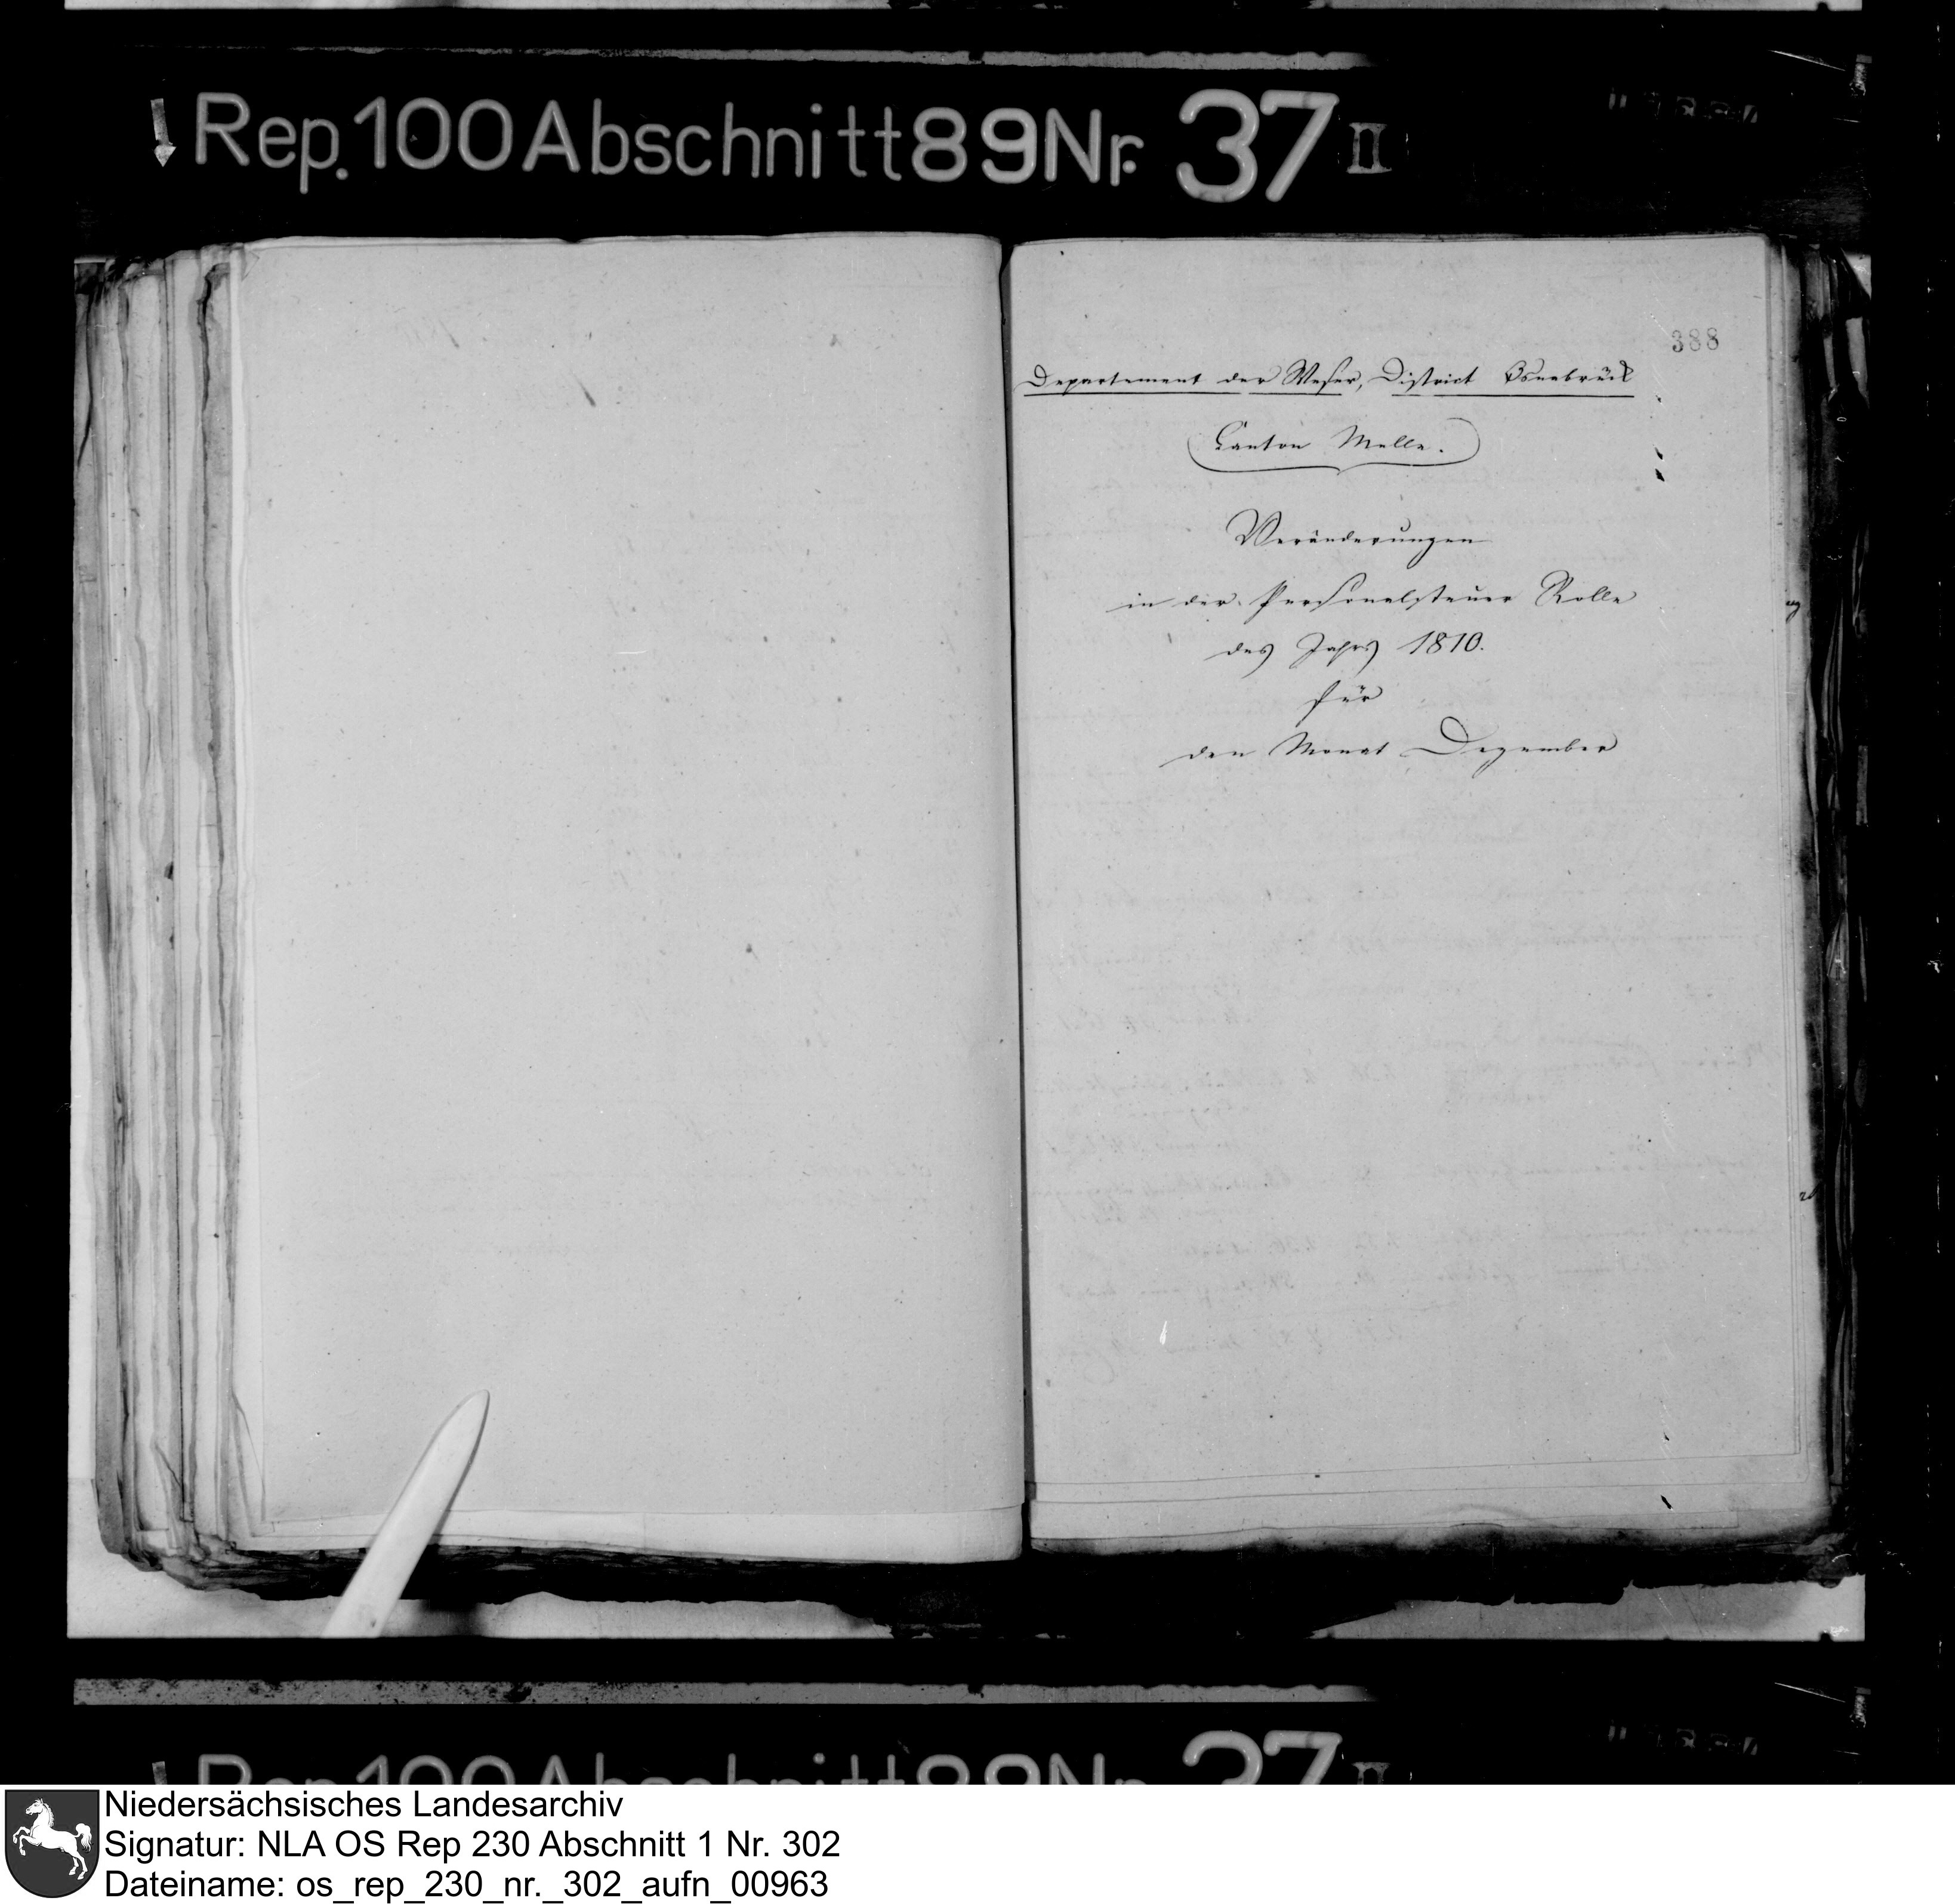 Rep. 100 Abschnitt 89 Nr. 37 II
388
Departement der Weser, District Osnabrück
Canton Melle.
Veränderungen
in der Personalsteuer Rolle
des Jahrs 1810.
für
den Monat Dezember
Rep. 100 Abschnitt 89 Nr. 37 II
Niedersächsisches Landesarchiv
Signatur: NLA OS Rep 230 Abschnitt 1 Nr. 302
Dateiname: os_rep_230_nr._302_aufn_00963